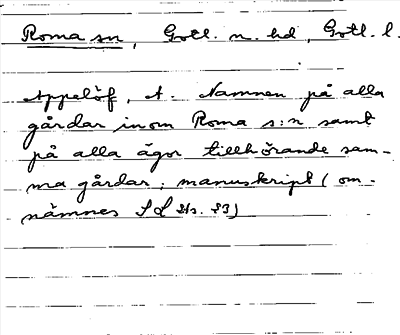 Roma sn, Gotl. n. hd, Gotl. l.
Appelöf, A. Namnen på alla
gårdar inom Roma s:n samt
på alla ägor tillhörande sam-
ma gårdar; manuskript (om-
nämnes SL